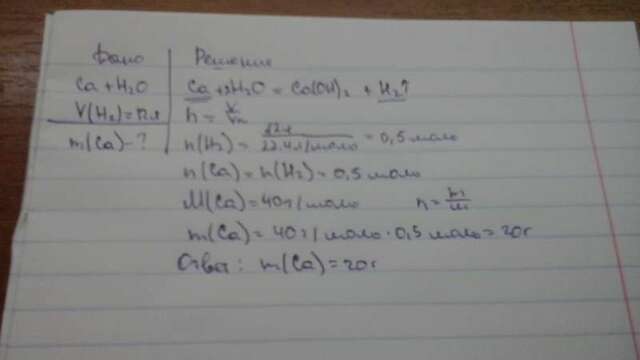 Дано
Ca + H₂O
V(H₂) = 12 л
m(Ca) - ?
Решение
Ca + 2H₂O = Ca(OH)₂ + H₂↑
n = V/Vm
n(H₂) = 12л / 22.4 л/моль = 0,5 моль
n(Ca) = n(H₂) = 0,5 моль
M(Ca) = 40 г/моль n = m/M
m(Ca) = 40 г/моль · 0,5 моль = 20г
Ответ: m(Ca) = 20г